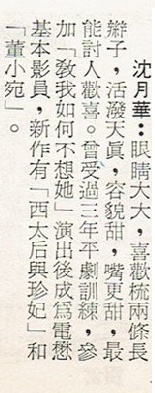 沈月華：眼睛大大，喜歡梳兩條長
辮子，活潑天眞，容貌甜，嘴更甜，最
能討人歡喜。曾受過三年平劇訓練，參
加「敎我如何不想她」演出後成爲電懋
基本影員，新作有「西太后與珍妃」和
「董小宛」。